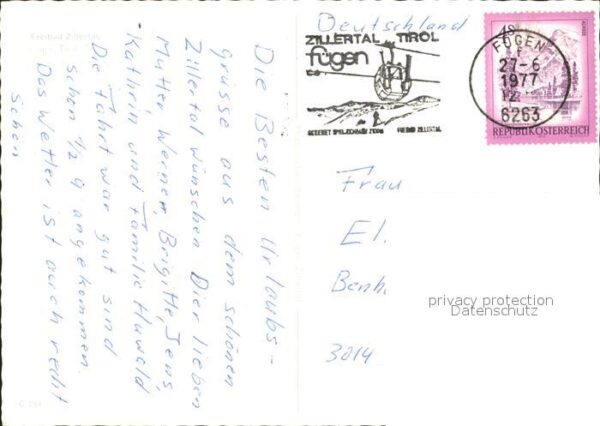 Freibad Zillertal
Deutschland
ZILLERTAL TIROL
fügen
FREIBAD ZILLERTAL
FÜGEN
27-6
1977
6263
REPUBLIK ÖSTERREICH
Die Besten Urlaubs-
grüsse aus dem schönen
Zillertal wünschen Dier lieben
Mutter Werner, Brigitte, Jens,
Kathrin und Familie Huwald
Die Fahrt war gut sind
schon 1/2 9 angekommen.
Das Wetter ist auch recht
schön
Frau
El.
Benh.
3014
privacy protection
Datenschutz